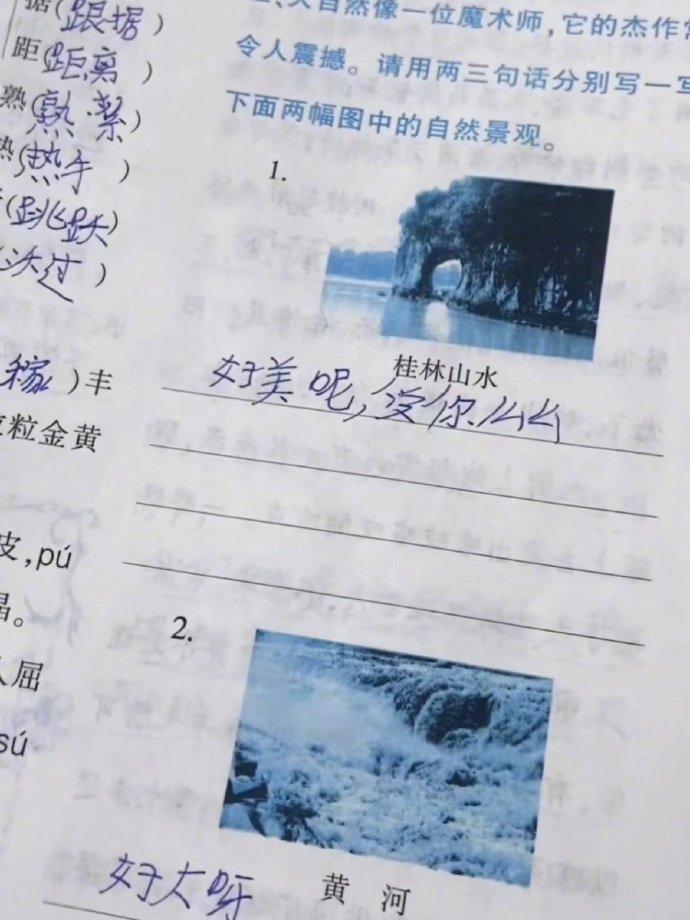 据(跟据)
距(距离)
熟(熟
热(热手)
(跳跃)
过)
稼)丰
粒金黄
皮,pú
晶。
人屈
sú
、大自然像一位魔术师,它的杰作常
令人震撼。请用两三句话分别写一写
下面两幅图中的自然景观。
1.
桂林山水
好美呢,没你么么
2.
黄 河
好大呀